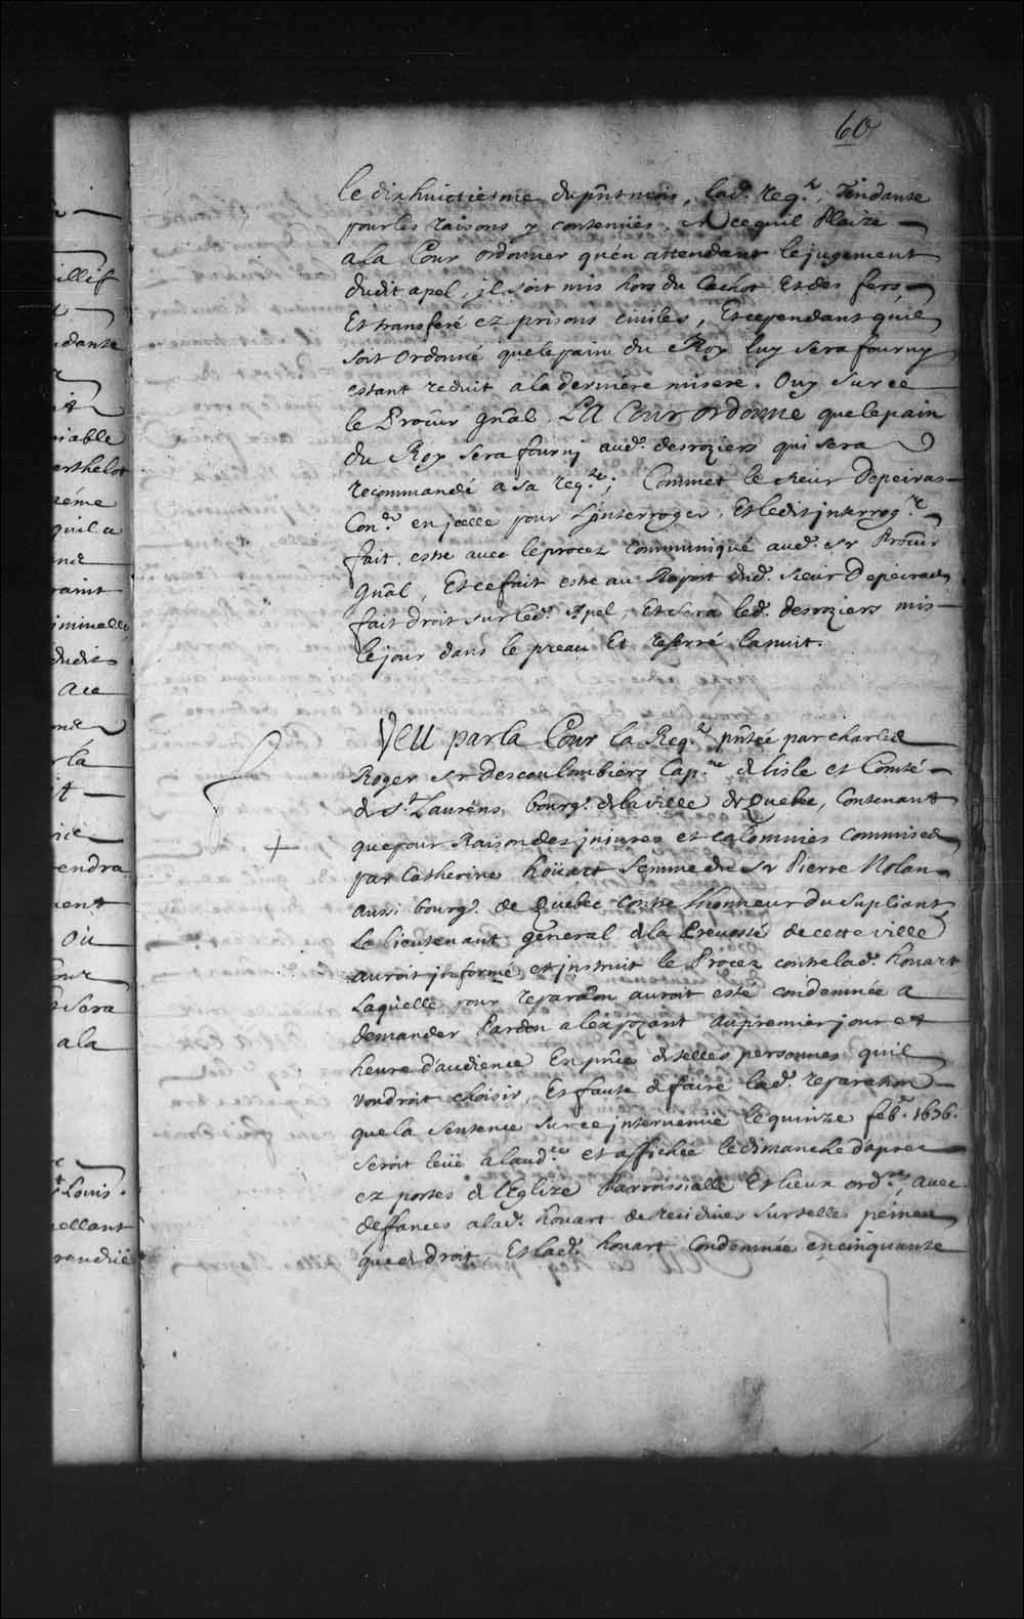 60
le dixhuictiesme du pñt mois, lad. req.te, Tendante
pour les raisons y contenües. A ce quil Plaize
a la Cour ordonner quen attendant le jugement
dudit apel, jl soit mis hors du cachot Et des fers
Et transferé ez prisons civiles, Et cependant quil
soit Ordonné que le pain du Roy luy sera fourny
estant reduit a la derniére misere. Ouy sur ce
le Procur gñal. LA Cour ordonne que le pain
du Roy sera fourny aud. desroziers qui sera
recommandé a sa req.te; Commet le sieur Depeiras
Con.er en jcelle pour Ljnterroger, Et ledit jnterrog.re
fait, estre avec le procez communiqué aud. sr Procur
Gnãl, Et ce fait estre au Raport dud. sieur Depeiras
fait droit sur led. Apel, Et sera led. desroziers mis
le jour dans le preau Et reserré la nuit.
VEU par la Cour la Req.te pñtée par charles
Roger sr descoulombiers Cap.ne de lisle et Comté
de S.t Laurens, bourg. de la ville de Quebec, Contenant
que pour Raison des jnjures et calomnies commises
par Catherine hoüart femme du Sr Pierre Nolan
aussi bourg. de Quebec contre lhonneur du Supliant
Le lieutenant general de la Prevosté de cette ville
auroit jnformé, et jnstruit le Procez contre lad. houart
Laquelle pour reparãon auroit esté condamnée a
demander Pardon a lexpozant au premier jour et
heure d'audience En pñce de telles personnes quil
voudroit choisir, Et faute de faire lad. reparation
que la sentence sur ce jntervenüe le quinze feb. 1656.
seroit leüe a laud.ce et affichée le dimanche d'aprez
ez portes de l'Eglize Parroissialle Et lieux ord.res, avec
deffances a lad. houart de recidiver sur telles peines
que de droit, Et lad. houart Condamnée en cinquante
+
illif
dante
niable
erthelot
quil a
iminelle
dudit
a ce
vendra
ou
sera
a la
Louis.